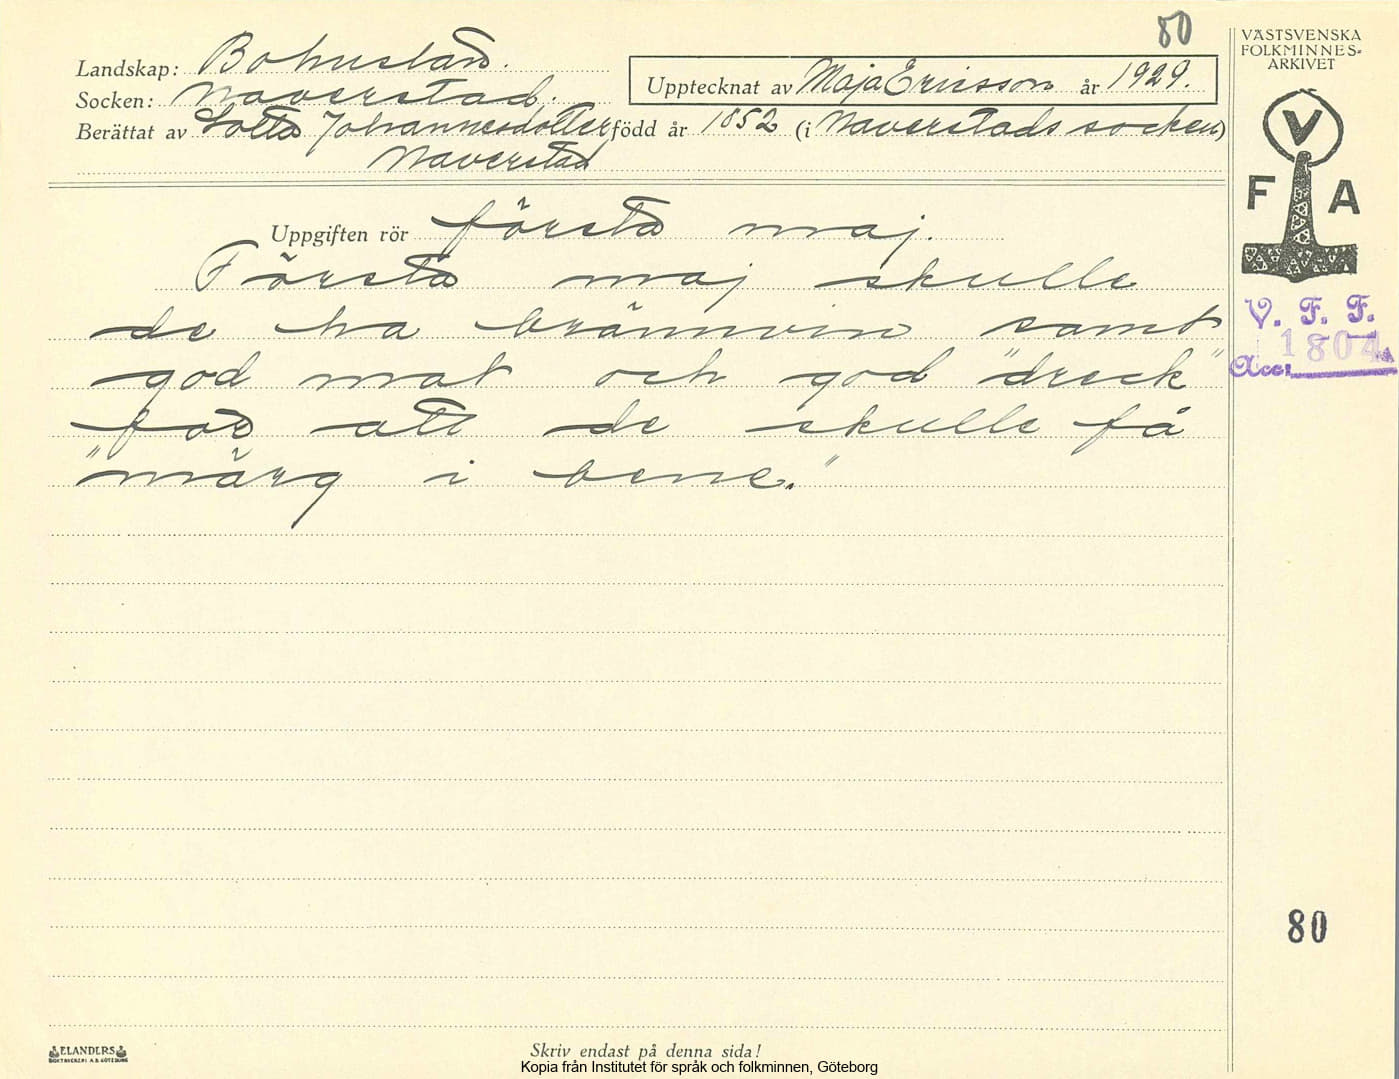 80
Landskap: Bohuslän.
Socken: Naverstad.
Upptecknat av Maja Ericsson år 1929.
Berättat av Lotta Johannesdotter född år 1852 (i Naverstads socken)
Naverstad
Uppgiften rör första maj.
Första maj skulle
de ha brännvin samt
god mat och god "dreck"
för att de skulle få
"märg i bene."
VÄSTSVENSKA
FOLKMINNES-
ARKIVET
V
F A
V. F. F.
1804
Acc:
80
ELANDERS
BOKTRYCKERI A.B. GÖTEBORG
Skriv endast på denna sida!
Kopia från Institutet för språk och folkminnen, Göteborg